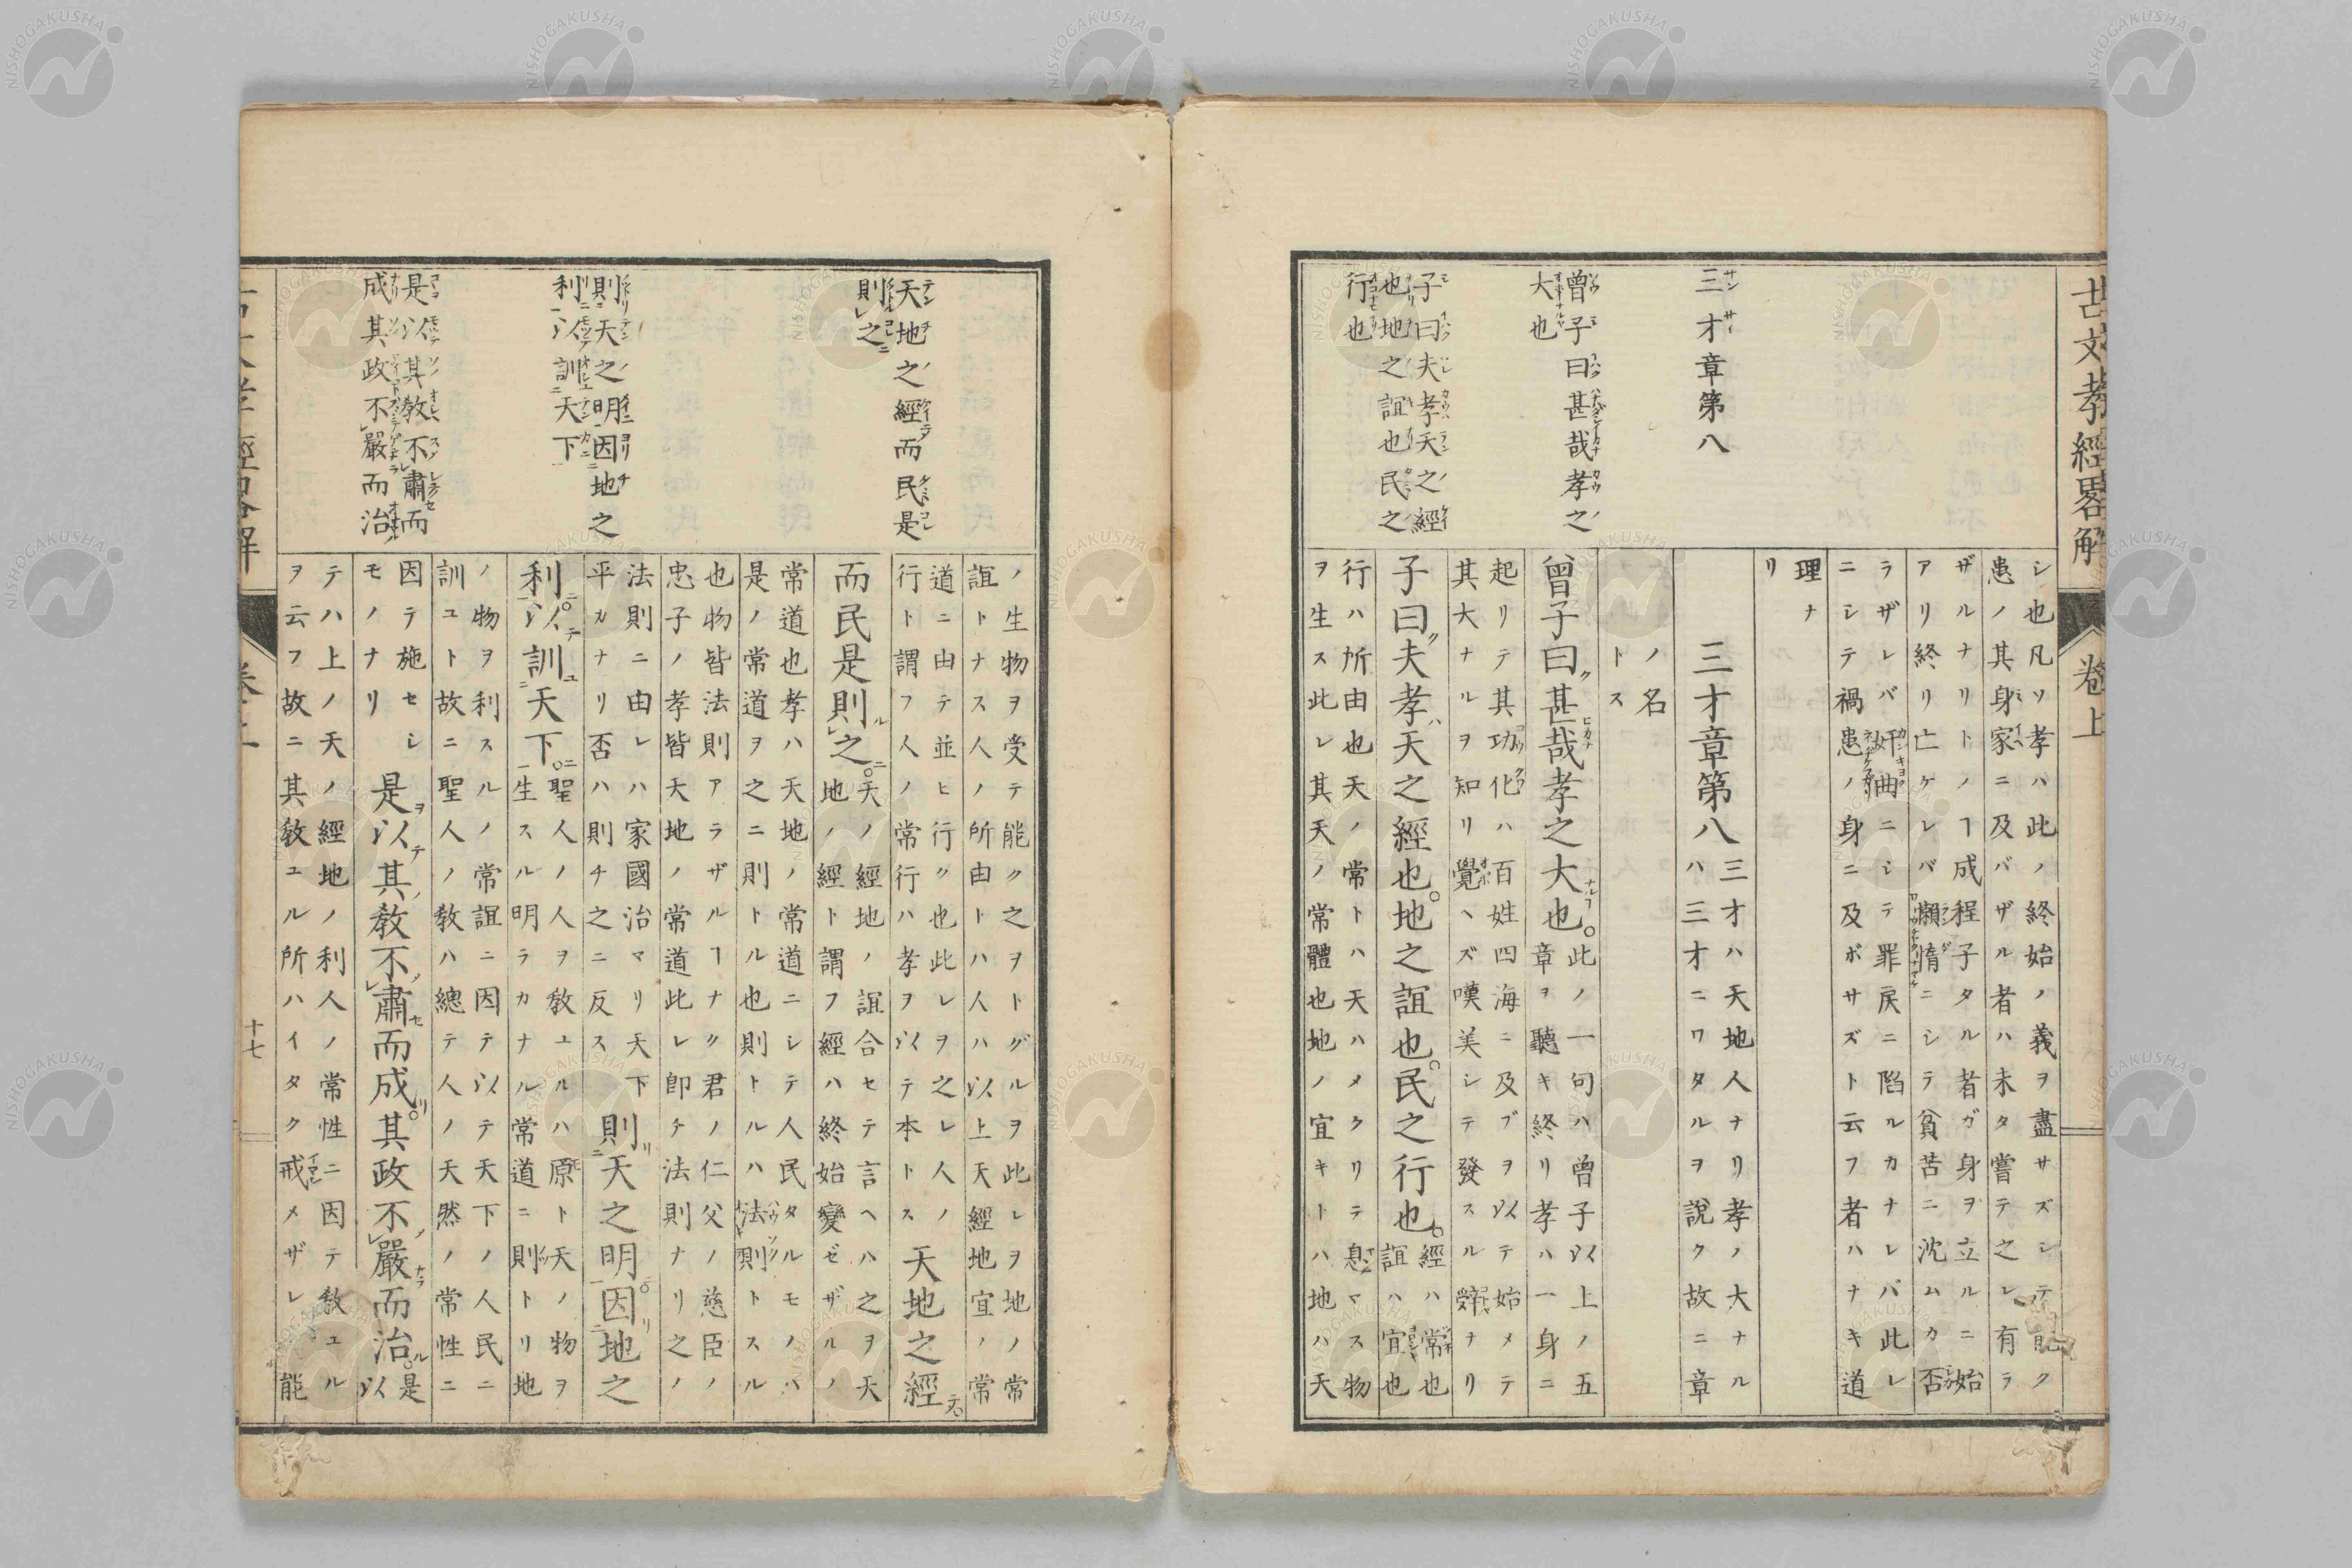 古文孝經畧解
卷上
三才章第八
曾子曰甚哉孝之
大也
子曰夫孝天之經
也地之誼也民之
行也
シ也凡ソ孝ハ此ノ終始ノ義ヲ盡サズシテ能ク
患ノ其身家ニ及バザル者ハ未タ嘗テ之レ有ラ
ザルナリトノヿ成程子タル者ガ身ヲ立ルニ始
アリ終リ亡ケレバ懶惰ニシテ貧苦ニ沈ムカ否
ラザレバ奸曲ニシテ罪戻ニ陷ルカナレバ此レ
ニシテ禍患ノ身ニ及ボサズト云フ者ハナキ道
理ナ
リ
三才章第八
三才ハ天地人ナリ孝ノ大ナル
ハ三才ニワタルヲ說ク故ニ章
ノ名
トス
曾子曰甚哉孝之大也
此ノ一句ハ曾子以上ノ五
章ヲ聽キ終リ孝ハ一身ニ
起リテ其功化ハ百姓四海ニ及ブヲ以テ始メテ
其大ナルヲ知リ覺ヘズ嘆美シテ發スル辤ナリ
子曰夫孝ハ天之經也地之誼也民之行也
經ハ常也
誼ハ宜也
行ハ所由也天ノ常トハ天ハメクリテ息マス物
ヲ生ス此レ其天ノ常體也地ノ宜キトハ地ハ天
天地之經而民是
則之
則天之明因地之
利以訓天下
是以其敎不肅而
成其政不嚴而治
ノ生物ヲ受テ能ク之ヲトグルヲ此レヲ地ノ常
誼トナス人ノ所由トハ人ハ以上天經地宜ノ常
道ニ由テ並ヒ行ク也此レヲ之レ人ノ
行ト謂フ人ノ常行ハ孝ヲ以テ本トス
天地之經
而民是則之
天ノ經地ノ誼合セテ言ヘハ之ヲ天
地ノ經ト謂フ經ハ終始變ゼザルノ
常道也孝ハ天地ノ常道ニシテ人民タルモノハ
是ノ常道ヲ之ニ則トル也則トルハ法則トスル
也物皆法則アラザルヿナク君ノ仁父ノ慈臣ノ
忠子ノ孝皆天地ノ常道此レ卽チ法則ナリ之ノ
法則ニ由レハ家國治マリ天下
平カナリ否ハ則チ之ニ反ス
則天之明因地之
利以訓天下
聖人ノ人ヲ敎ユルハ原ト天ノ物ヲ
生スル明ラカナル常道ニ則トリ地
ノ物ヲ利スルノ常誼ニ因テ以テ天下ノ人民ニ
訓ユト故ニ聖人ノ敎ハ總テ人ノ天然ノ常性ニ
因テ施セシ
モノナリ
是以其敎不肅而成其政不嚴而治
是
以
テハ上ノ天ノ經地ノ利人ノ常性ニ因テ敎ユル
ヲ云フ故ニ其敎ユル所ハイタク戒メザレ能
十七